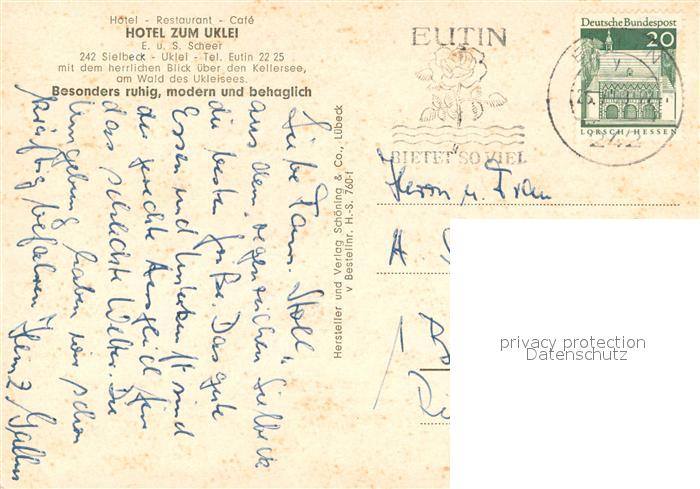 Hotel - Restaurant - Café
HOTEL ZUM UKLEI
E. u. S. Scheer
242 Sielbeck - Uklei - Tel. Eutin 22 25
mit dem herrlichen Blick über den Kellersee,
am Wald des Ukleisees.
Besonders ruhig, modern und behaglich
Liebe Fam. Stoll,
aus dem regenreichen Sielbeck
die besten Grüße. Das gute
Essen und Unterkunft sind
der gerechte Ausgleich für
das schlechte Wetter. Die
Umgebung haben wir schon
kräftig befahren.
Hersteller und Verlag Schöning & Co., Lübeck
v Bestellnr. H.-S. 760-f
EUTIN
BIETET SO VIEL
Deutsche Bundespost
20
LORSCH/HESSEN
242
Herrn u. Frau
A. S
privacy protection
Datenschutz